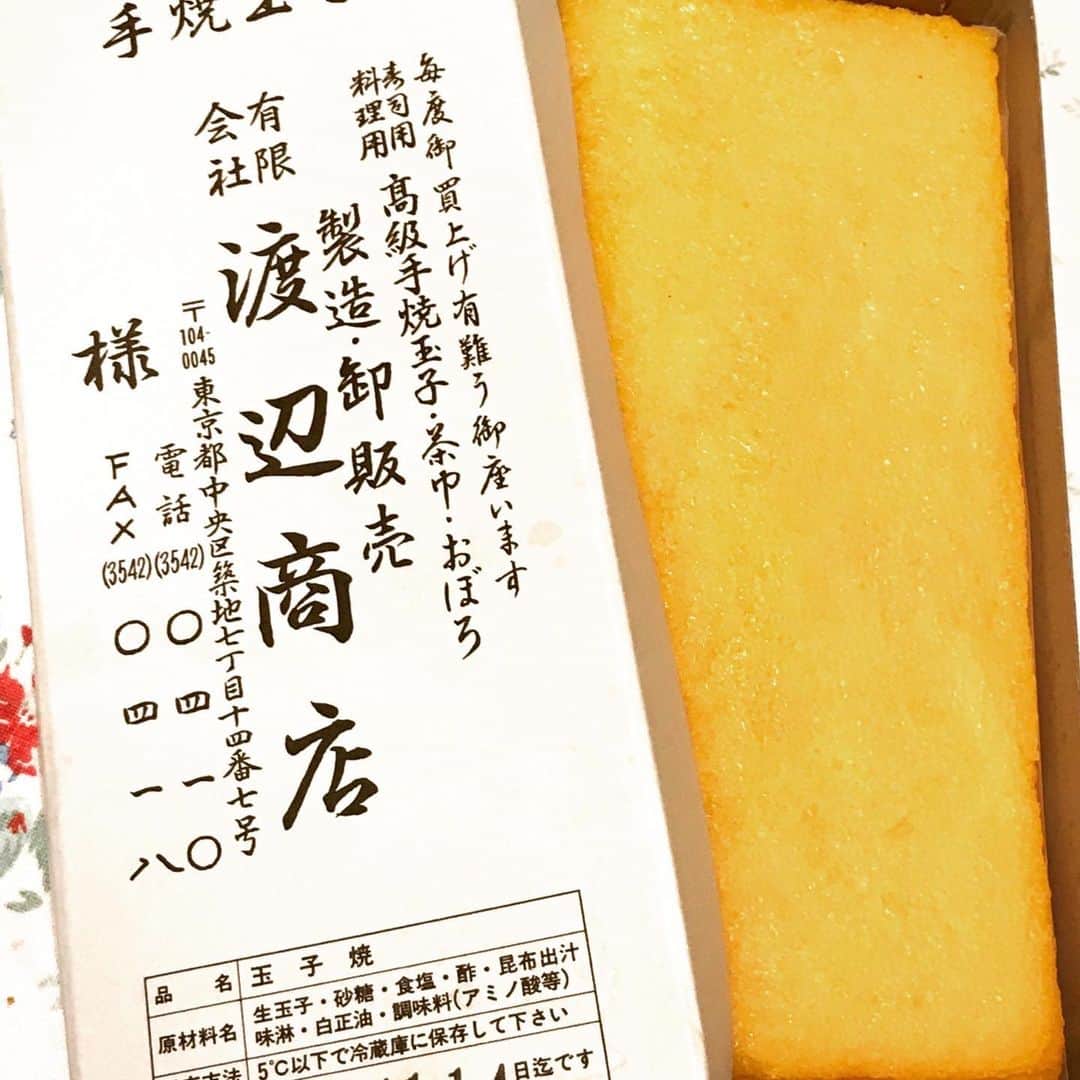 手焼玉子
毎度御買上げ有難う御座います
寿司用
料理用
高級手焼玉子・茶巾・おぼろ
製造・卸販売
有限
会社
渡辺商店
〒104-0045 東京都中央区築地七丁目十四番七号
電話(3542)〇四一〇
FAX(3542)〇四一八
様
品名 玉子焼
原材料名 生玉子・砂糖・食塩・酢・昆布出汁
味淋・白正油・調味料(アミノ酸等)
5℃以下で冷蔵庫に保存して下さい
日迄です